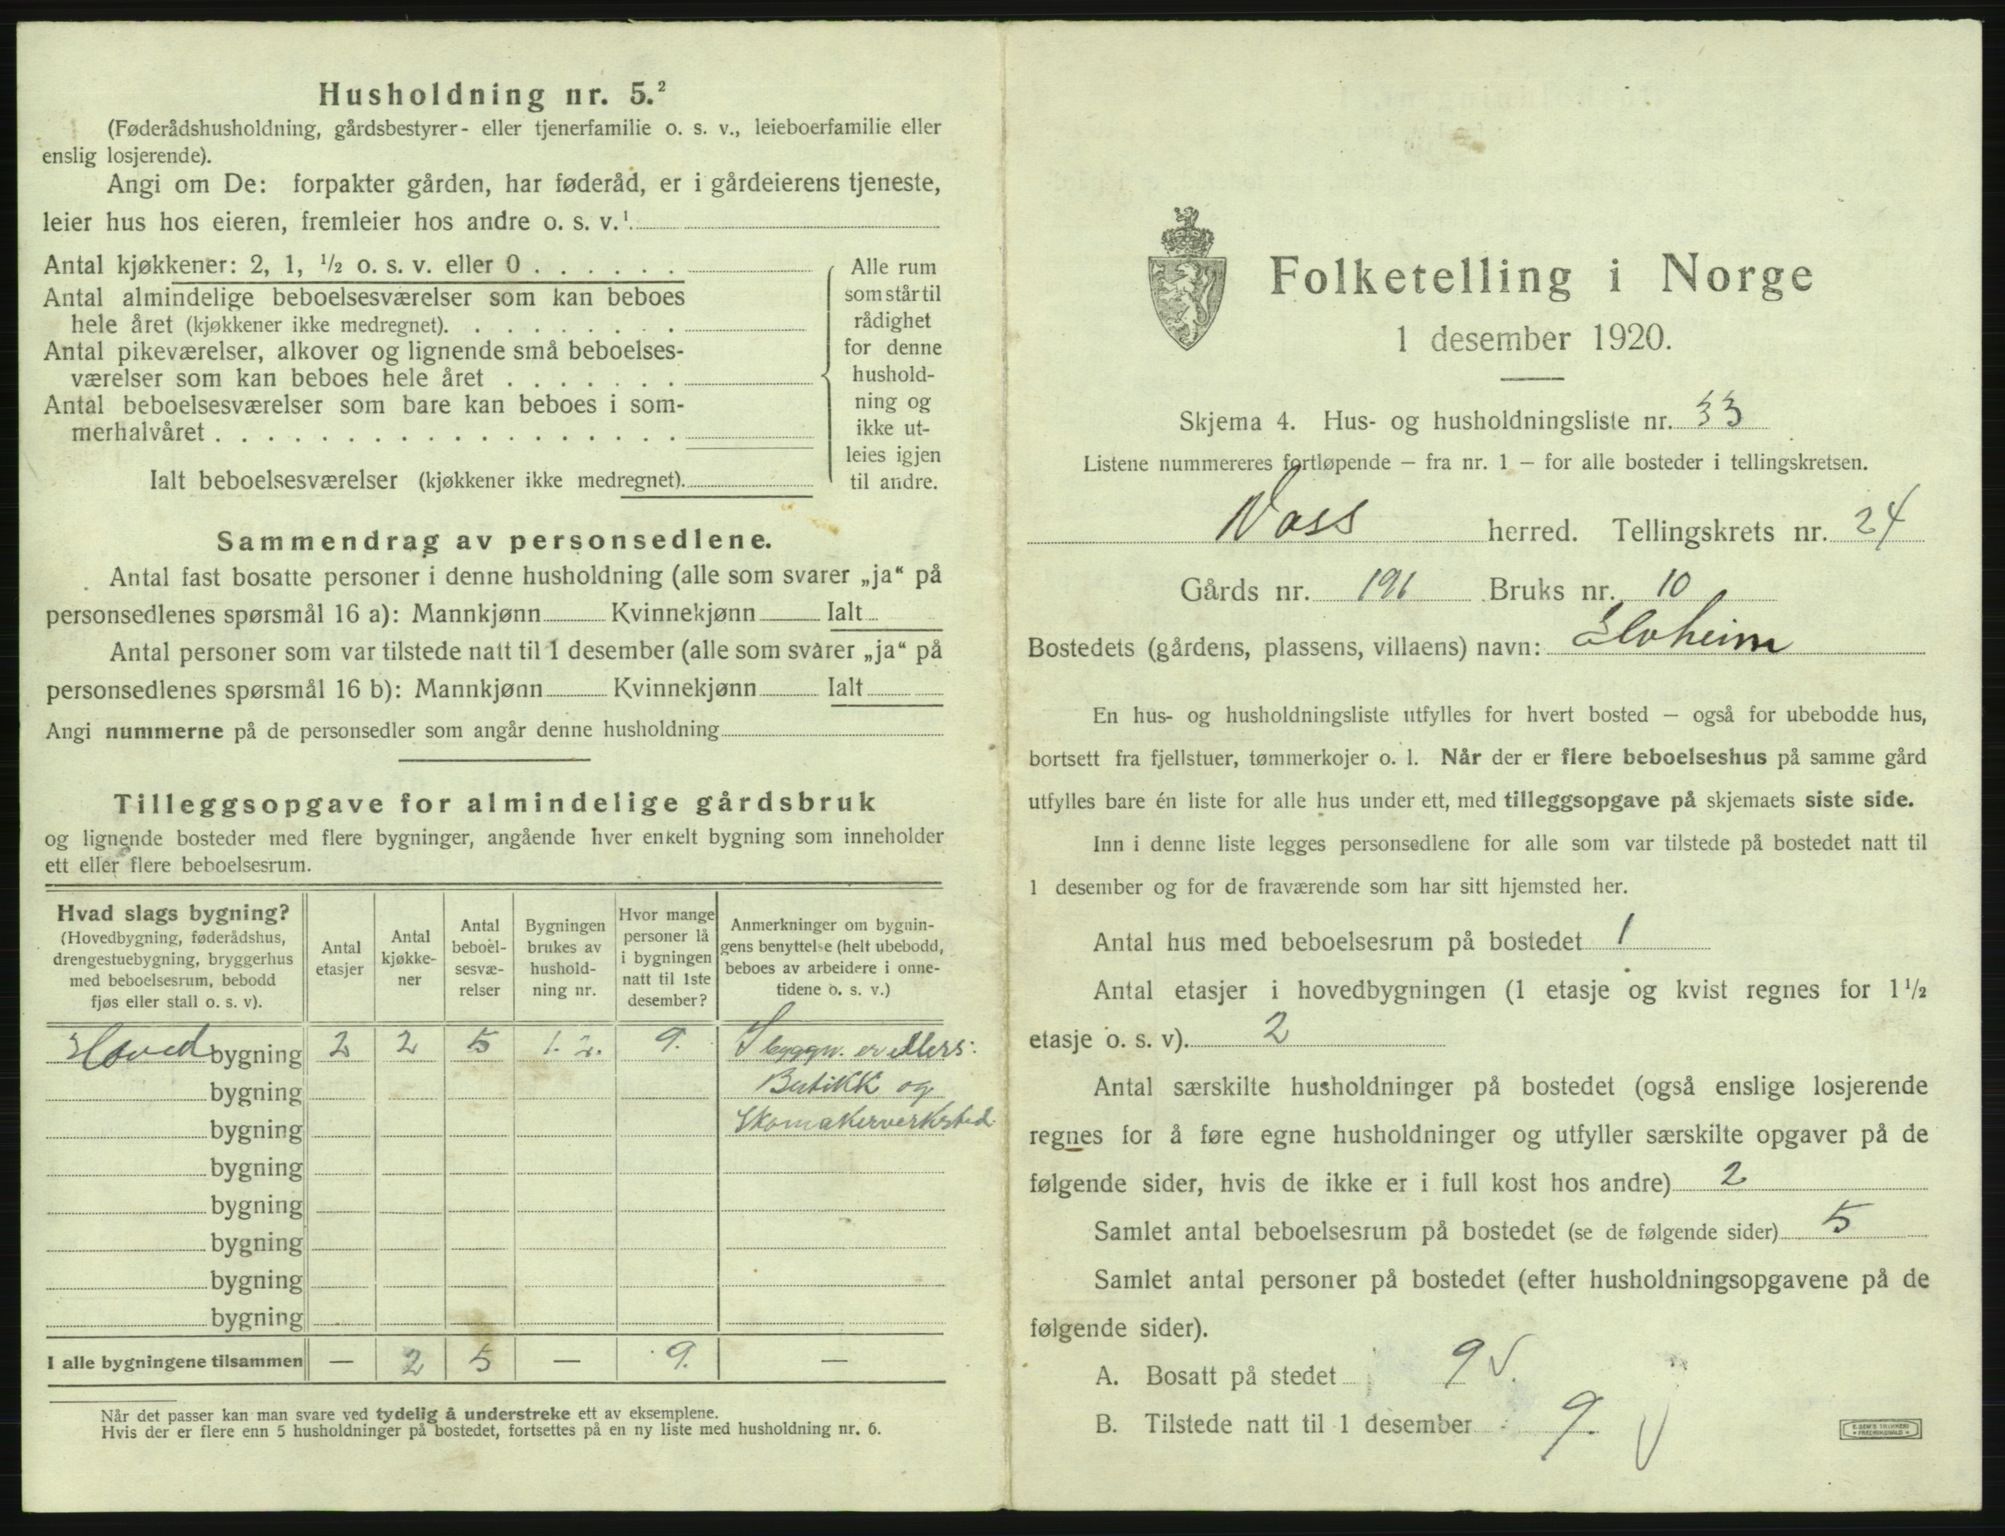 Husholdning nr. 5.²
(Føderådshusholdning, gårdsbestyrer- eller tjenerfamilie o. s. v., leieboerfamilie eller
enslig losjerende).
Angi om De: forpakter gården, har føderåd, er i gårdeierens tjeneste,
leier hus hos eieren, fremleier hos andre o. s. v.¹
Antal kjøkkener: 2, 1, ½ o. s. v. eller 0
Antal almindelige beboelsesværelser som kan beboes
hele året (kjøkkener ikke medregnet).
Antal pikeværelser, alkover og lignende små beboelses-
værelser som kan beboes hele året
Antal beboelsesværelser som bare kan beboes i som-
merhalvåret
Ialt beboelsesværelser (kjøkkener ikke medregnet).
Alle rum
som står til
rådighet
for denne
hushold-
ning og
ikke ut-
leies igjen
til andre.
Sammendrag av personsedlene.
Antal fast bosatte personer i denne husholdning (alle som svarer „ja“ på
personsedlenes spørsmål 16 a): Mannkjønn Kvinnekjønn Ialt
Antal personer som var tilstede natt til 1 desember (alle som svarer „ja“ på
personsedlenes spørsmål 16 b): Mannkjønn Kvinnekjønn Ialt
Angi nummerne på de personsedler som angår denne husholdning
Tilleggsopgave for almindelige gårdsbruk
og lignende bosteder med flere bygninger, angående hver enkelt bygning som inneholder
ett eller flere beboelsesrum.
Hvad slags bygning?
(Hovedbygning, føderådshus,
drengestuebygning, bryggerhus
med beboelsesrum, bebodd
fjøs eller stall o. s. v).
Antal
etasjer
Antal
kjøkke-
ner
Antal
beboel-
sesvæ-
relser
Bygningen
brukes av
hushold-
ning nr.
Hvor mange
personer lå
i bygningen
natt til 1ste
desember?
Anmerkninger om bygnin-
gens benyttelse (helt ubebodd,
beboes av arbeidere i onne-
tidene o. s. v.)
Hoved bygning 2 2 5 1. 2. 9. I byggn. er ellers:
bygning Butikk og
bygning Skomakerverksted.
bygning
bygning
bygning
bygning
bygning
I alle bygningene tilsammen — 2 5 — 9. —
Når det passer kan man svare ved tydelig å understreke ett av eksemplene.
Hvis der er flere enn 5 husholdninger på bostedet, fortsettes på en ny liste med husholdning nr. 6.
Folketelling i Norge
1 desember 1920.
Skjema 4. Hus- og husholdningsliste nr. 33
Listene nummereres fortløpende – fra nr. 1 – for alle bosteder i tellingskretsen.
Voss herred. Tellingskrets nr. 24
Gårds nr. 191 Bruks nr. 10
Bostedets (gårdens, plassens, villaens) navn: Elvheim
En hus- og husholdningsliste utfylles for hvert bosted – også for ubebodde hus,
bortsett fra fjellstuer, tømmerkojer o. l. Når der er flere beboelseshus på samme gård
utfylles bare én liste for alle hus under ett, med tilleggsopgave på skjemaets siste side.
Inn i denne liste legges personsedlene for alle som var tilstede på bostedet natt til
1 desember og for de fraværende som har sitt hjemsted her.
Antal hus med beboelsesrum på bostedet 1
Antal etasjer i hovedbygningen (1 etasje og kvist regnes for 1½
etasje o. s. v). 2
Antal særskilte husholdninger på bostedet (også enslige losjerende
regnes for å føre egne husholdninger og utfyller særskilte opgaver på de
følgende sider, hvis de ikke er i full kost hos andre) 2
Samlet antal beboelsesrum på bostedet (se de følgende sider) 5
Samlet antal personer på bostedet (efter husholdningsopgavene på de
følgende sider).
A. Bosatt på stedet 9
B. Tilstede natt til 1 desember 9.